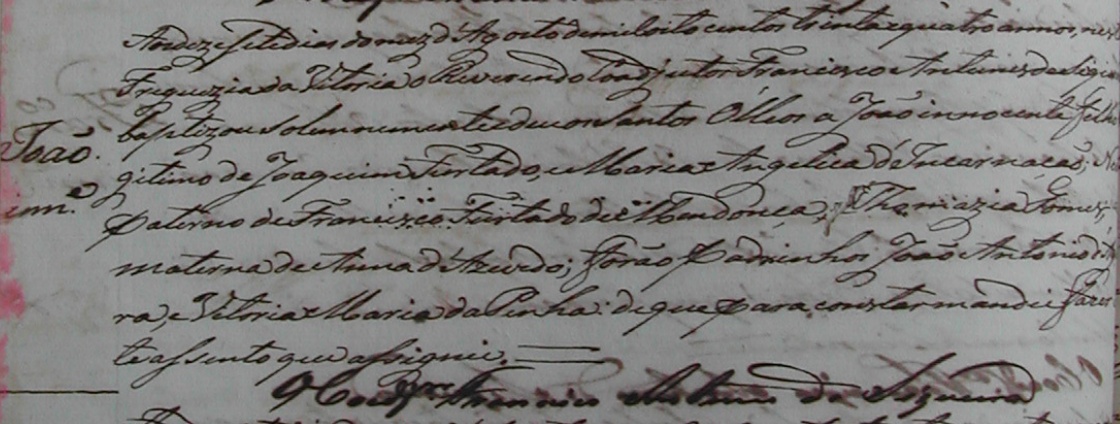 Aos dezesete dias do mez d'Agosto de mil oito centos trinta e quatro annos, nes
Freguezia da Vitoria o Reverendo Coadjutor Francisco Antunes de Siqu
João. baptizou solemnemente e deu os Santos Olleos a João innocente filh
inn.e gitimo de Joaquim Furtado, e Maria Angelica da Incarnação;
paterno de Francisco Furtado de Mendonça, e Thomazia Gomes,
materna de Anna d'Azevedo; forão Padrinhos João Antonio d
ra, e Vitoria Maria da Penha: de que para constar mandei fazer
te assento que assignei.
O Coadj.or Francisco Antunes de Siqueira